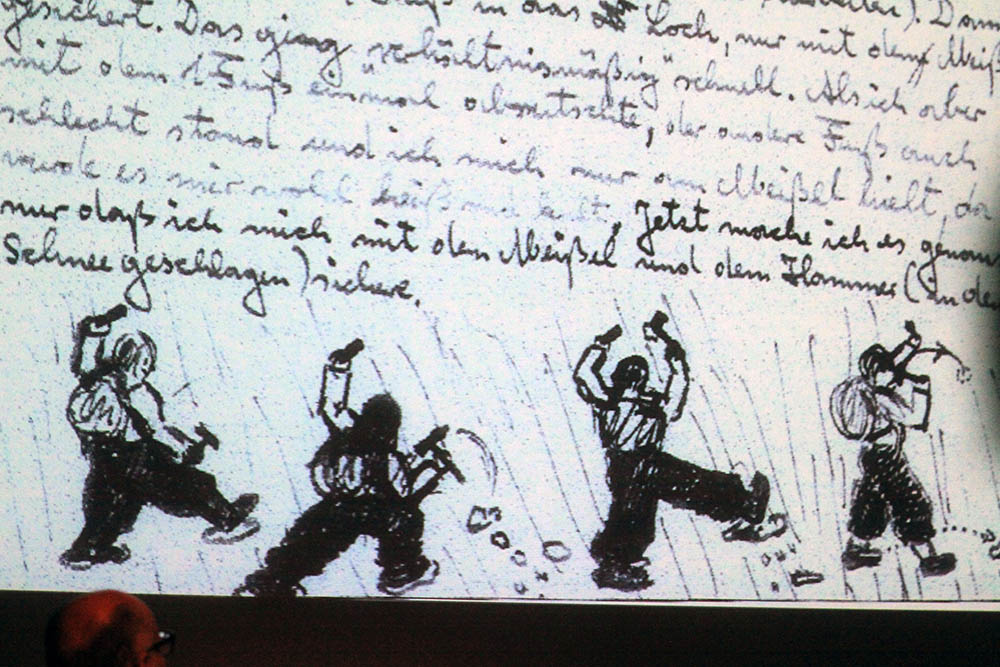 in das Loch, nur mit dem Meiß
gesichert. Das ging "verhältnismäßig" schnell. Als ich aber
mit dem 1 Fuß einmal abrutschte, der andere Fuß auch
schlecht stand und ich mich nur am Meißel hielt, da
wurde es mir wohl heiß und kalt. Jetzt mache ich es genau
nur daß ich mich mit dem Meißel und dem Hammer (in den
Schnee geschlagen) sichere.